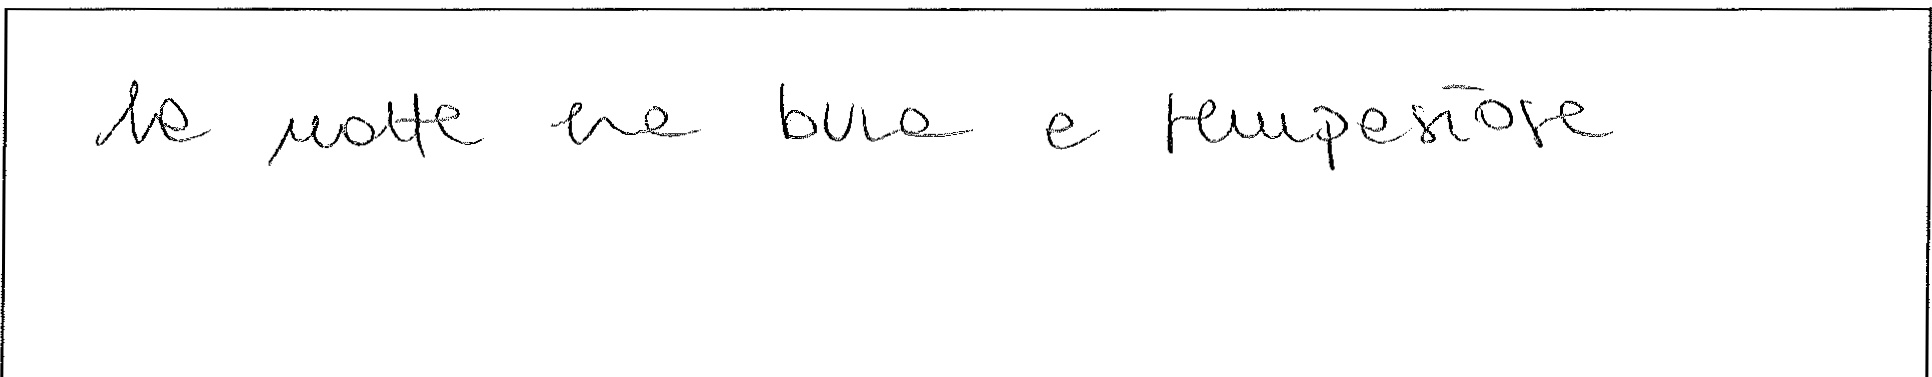 la notte era buia e tempestosa